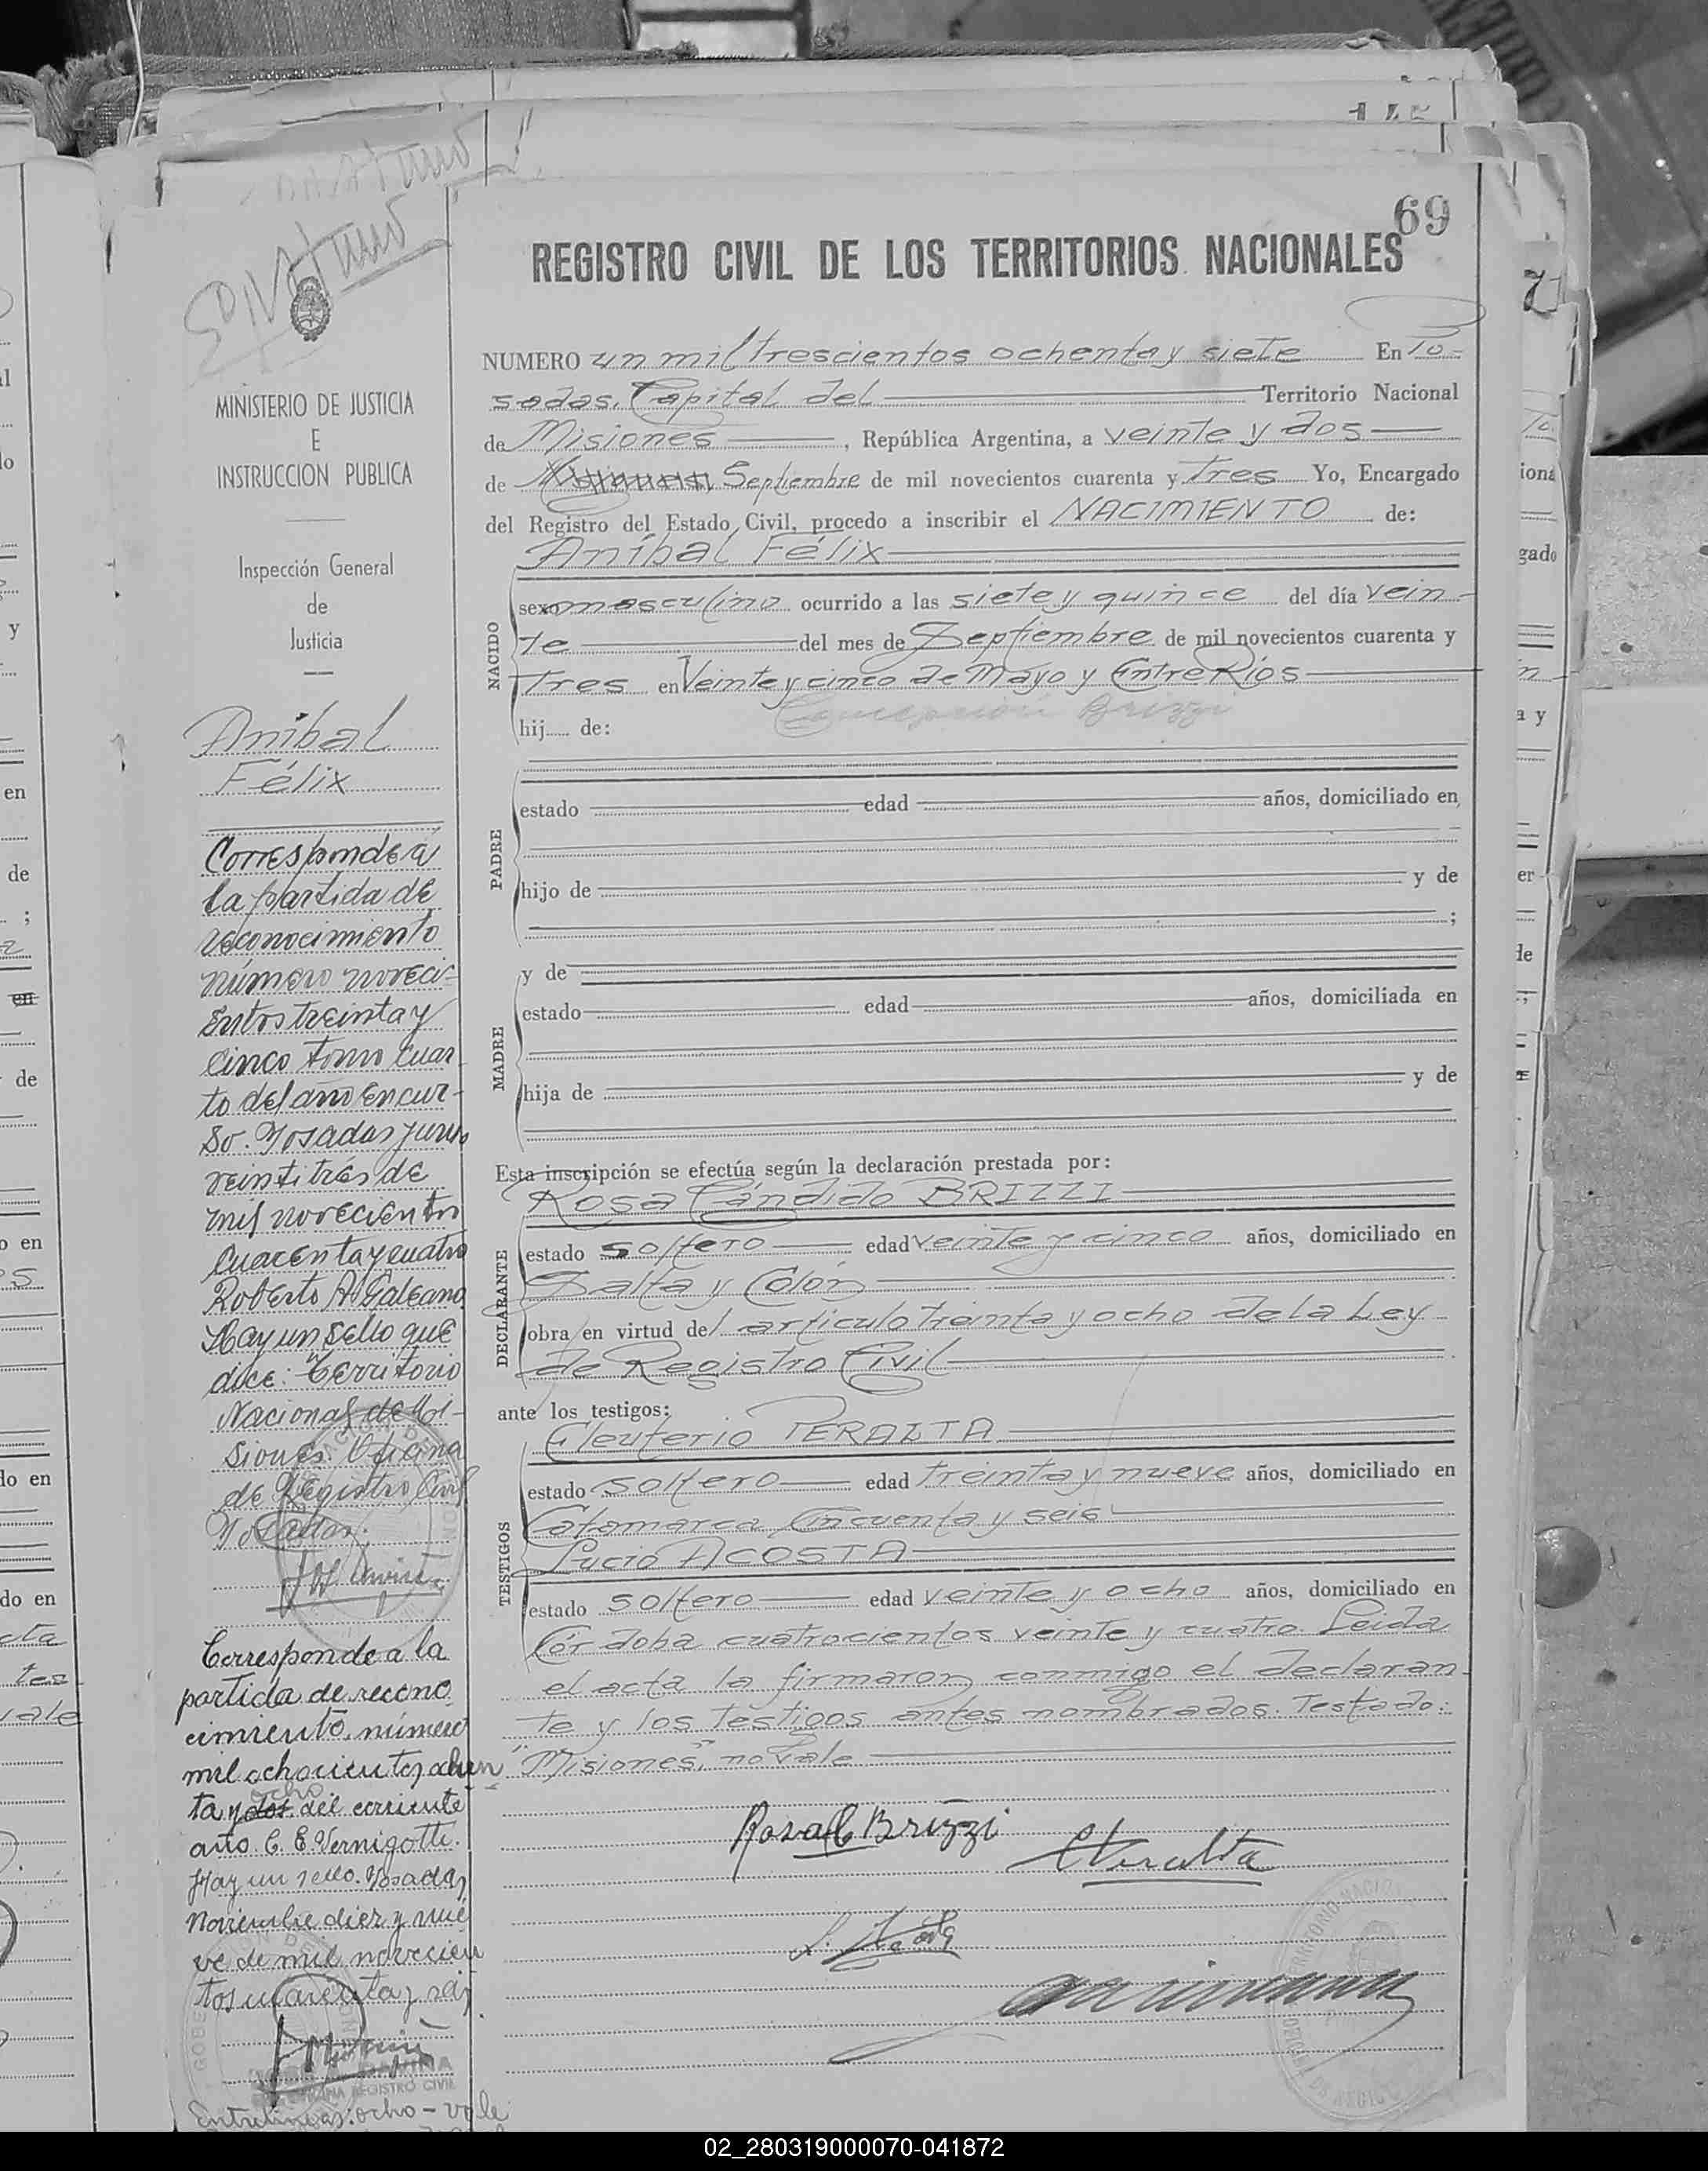 69
REGISTRO CIVIL DE LOS TERRITORIOS NACIONALES
MINISTERIO DE JUSTICIA
E
INSTRUCCION PUBLICA
Inspección General
de
Justicia
Aníbal
Félix
Corresponde a
la partida de
reconocimiento
número noveci-
entos treinta y
cinco tomo cuar-
to del año en cur-
so. Posadas junio
veintitrés de
mil novecientos
cuarenta y cuatro
Roberto A. Galeano
Hay un sello que
dice: "Territorio
Nacional de Mi-
siones. Oficina
de Registro Civil
Posadas.
Corresponde a la
partida de recono
cimiento número
mil ochocientos ochen
ocho
ta y dos del corriente
año. C. E. Vernigotti.
Hay un sello. Posadas,
Noviembre diez y nue
ve de mil novecien
tos cuarenta y seis
REGISTRO CIVIL
Entrelíneas: ocho - vale
NUMERO un mil trescientos ochenta y siete En Po-
sadas, Capital del Territorio Nacional
de Misiones, República Argentina, a veinte y dos
de Misiones, Septiembre de mil novecientos cuarenta y tres Yo, Encargado
del Registro del Estado Civil, procedo a inscribir el NACIMIENTO de:
NACIDO
Aníbal Félix
sexo masculino ocurrido a las siete y quince del día vein-
te del mes de Septiembre de mil novecientos cuarenta y
tres en Veinte y cinco de Mayo y Entre Ríos
hij de: Concepcion Brizzi
PADRE
estado edad años, domiciliado en
hijo de y de
;
MADRE
y de
estado edad años, domiciliada en
hija de y de
Esta inscripción se efectúa según la declaración prestada por:
DECLARANTE
Rosa Cándido BRIZZI
estado soltero edad veinte y cinco años, domiciliado en
Salta y Colón
obra en virtud del artículo treinta y ocho de la Ley
de Registro Civil
ante los testigos:
TESTIGOS
Eleuterio PERALTA
estado soltero edad treinta y nueve años, domiciliado en
Catamarca Cincuenta y seis
Lucio ACOSTA
estado soltero edad veinte y ocho años, domiciliado en
Córdoba cuatrocientos veinte y cuatro Leida
el acta la firmaron conmigo el declaran-
te y los testigos antes nombrados. Testado:
"Misiones," no vale
Rosa C Brizzi
E Peralta
L. Acosta
02_280319000070-041872